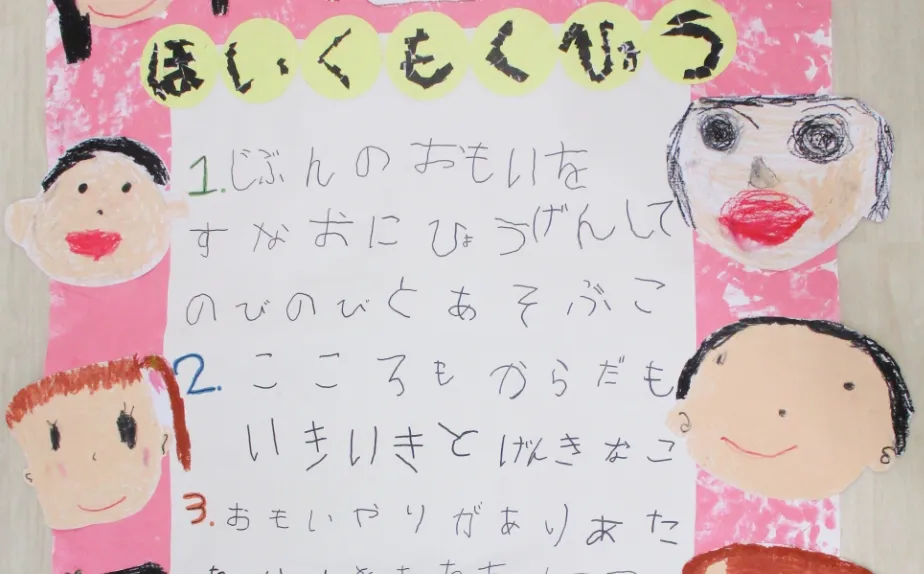 ほいくもくひょう
1.じぶんのおもいを
すなおにひょうげんして
のびのびとあそぶこ
2.こころもからだも
いきいきとげんきなこ
3.おもいやりがありあた